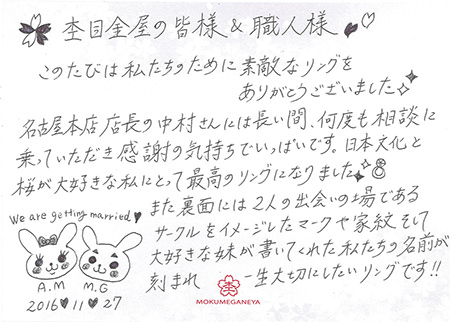 杢目金屋の皆様 & 職人様
このたびは私たちのために素敵なリングを
ありがとうございました
名古屋本店店長の中村さんには長い間、何度も相談に
乗っていただき感謝の気持ちでいっぱいです。日本文化と
桜が大好きな私にとって最高のリングになりました
また裏面には2人の出会いの場である
サークルをイメージしたマークや家紋そして
大好きな妹が書いてくれた私たちの名前が
刻まれ 一生大切にしたいリングです!!
We are getting married♥
A.M M.G
2016♥11♥27
MOKUMEGANEYA